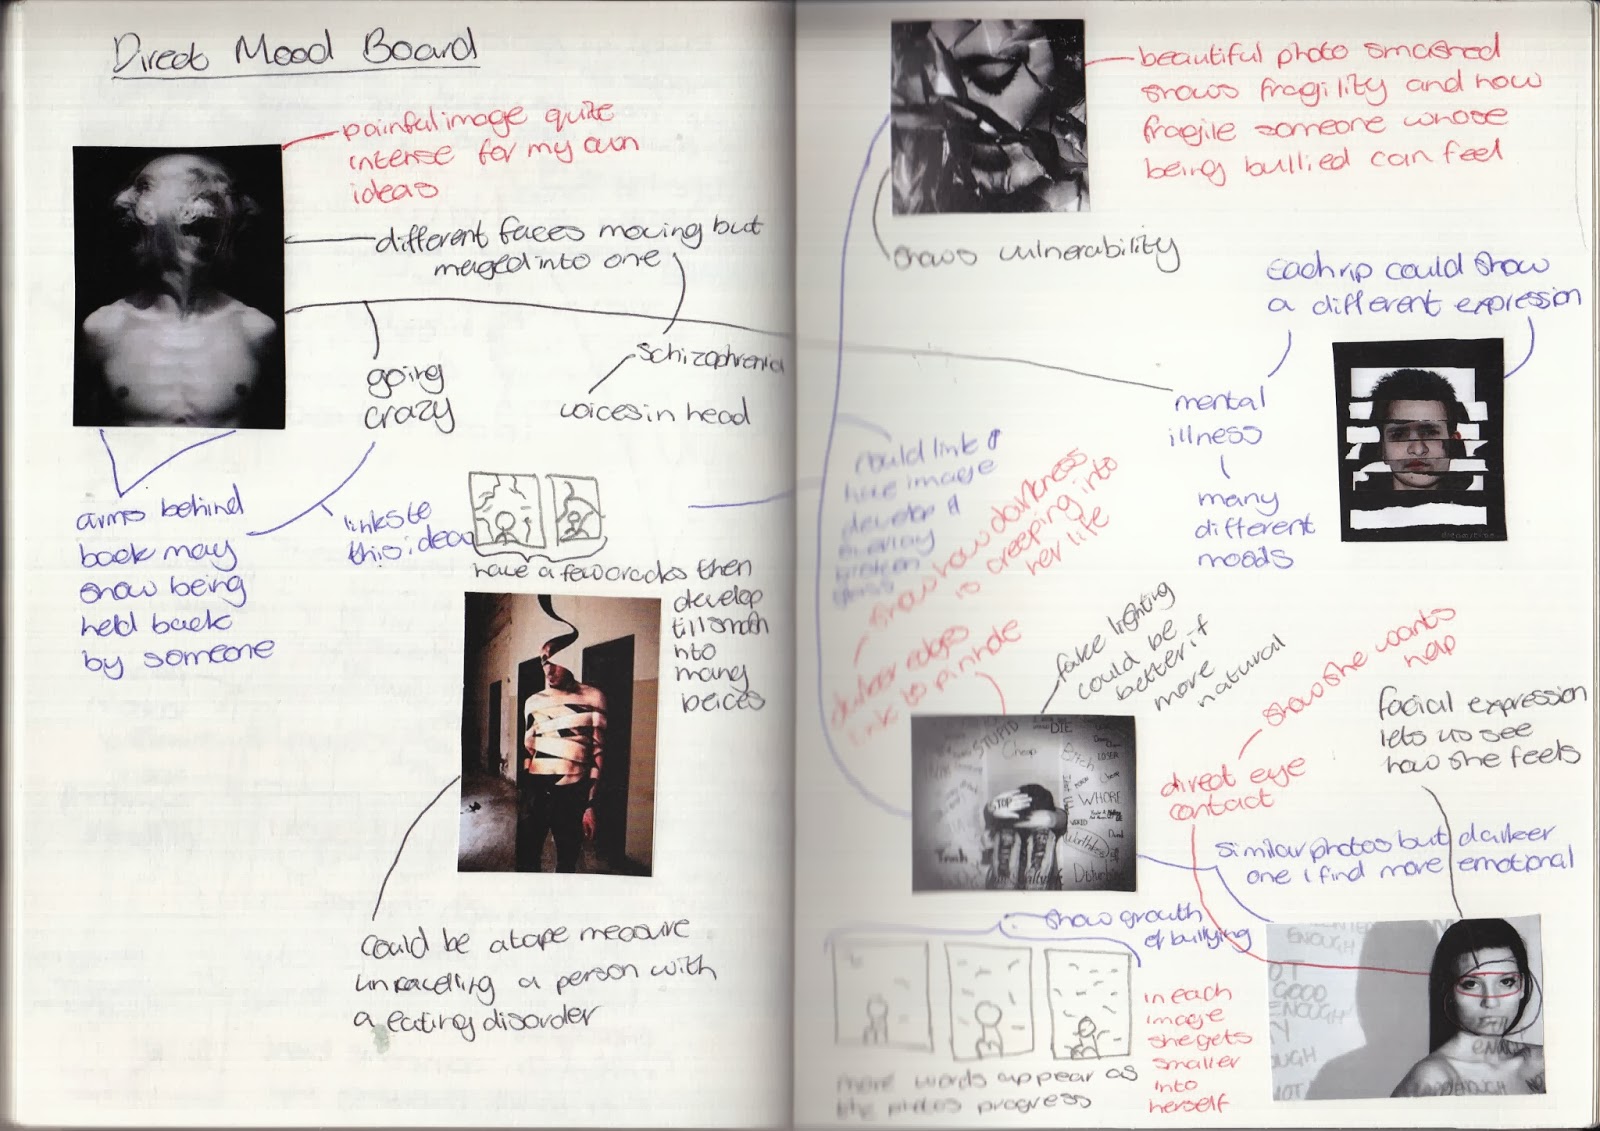 Direct Mood Board
painful image quite
intense for my own
ideas
different faces moving but
merged into one
schizophrenia
voices in head
going
crazy
arms behind
back may
show being
held back
by someone
links to
this idea
have a few cracks then
develop
till smash
into
many
peices
could be a tape measure
unravelling a person with
a eating disorder
beautiful photo smashed
shows fragility and how
fragile someone whose
being bullied can feel
shows vulnerability
Each rip could show
a different expression
mental
illness
many
different
moods
could link
image
develop
overlay
broken
glass
show how darkness
is creeping into
her life
darker edges
link to pinhole
fake lighting
could be
better if
more
natural
show she wants
help
direct eye
contact
facial expression
lets us see
how she feels
similar photos but darker
one i find more emotional
STUPID
DIE
Cheap
Bitch
LOSER
STOP
WHORE
Worthless
Trash
Disturbing
show growth
of bullying
in each
image
she gets
smaller
into
herself
more words appear as
the photos progress
ENOUGH
GOOD
ENOUGH
ENOUGH
NOT